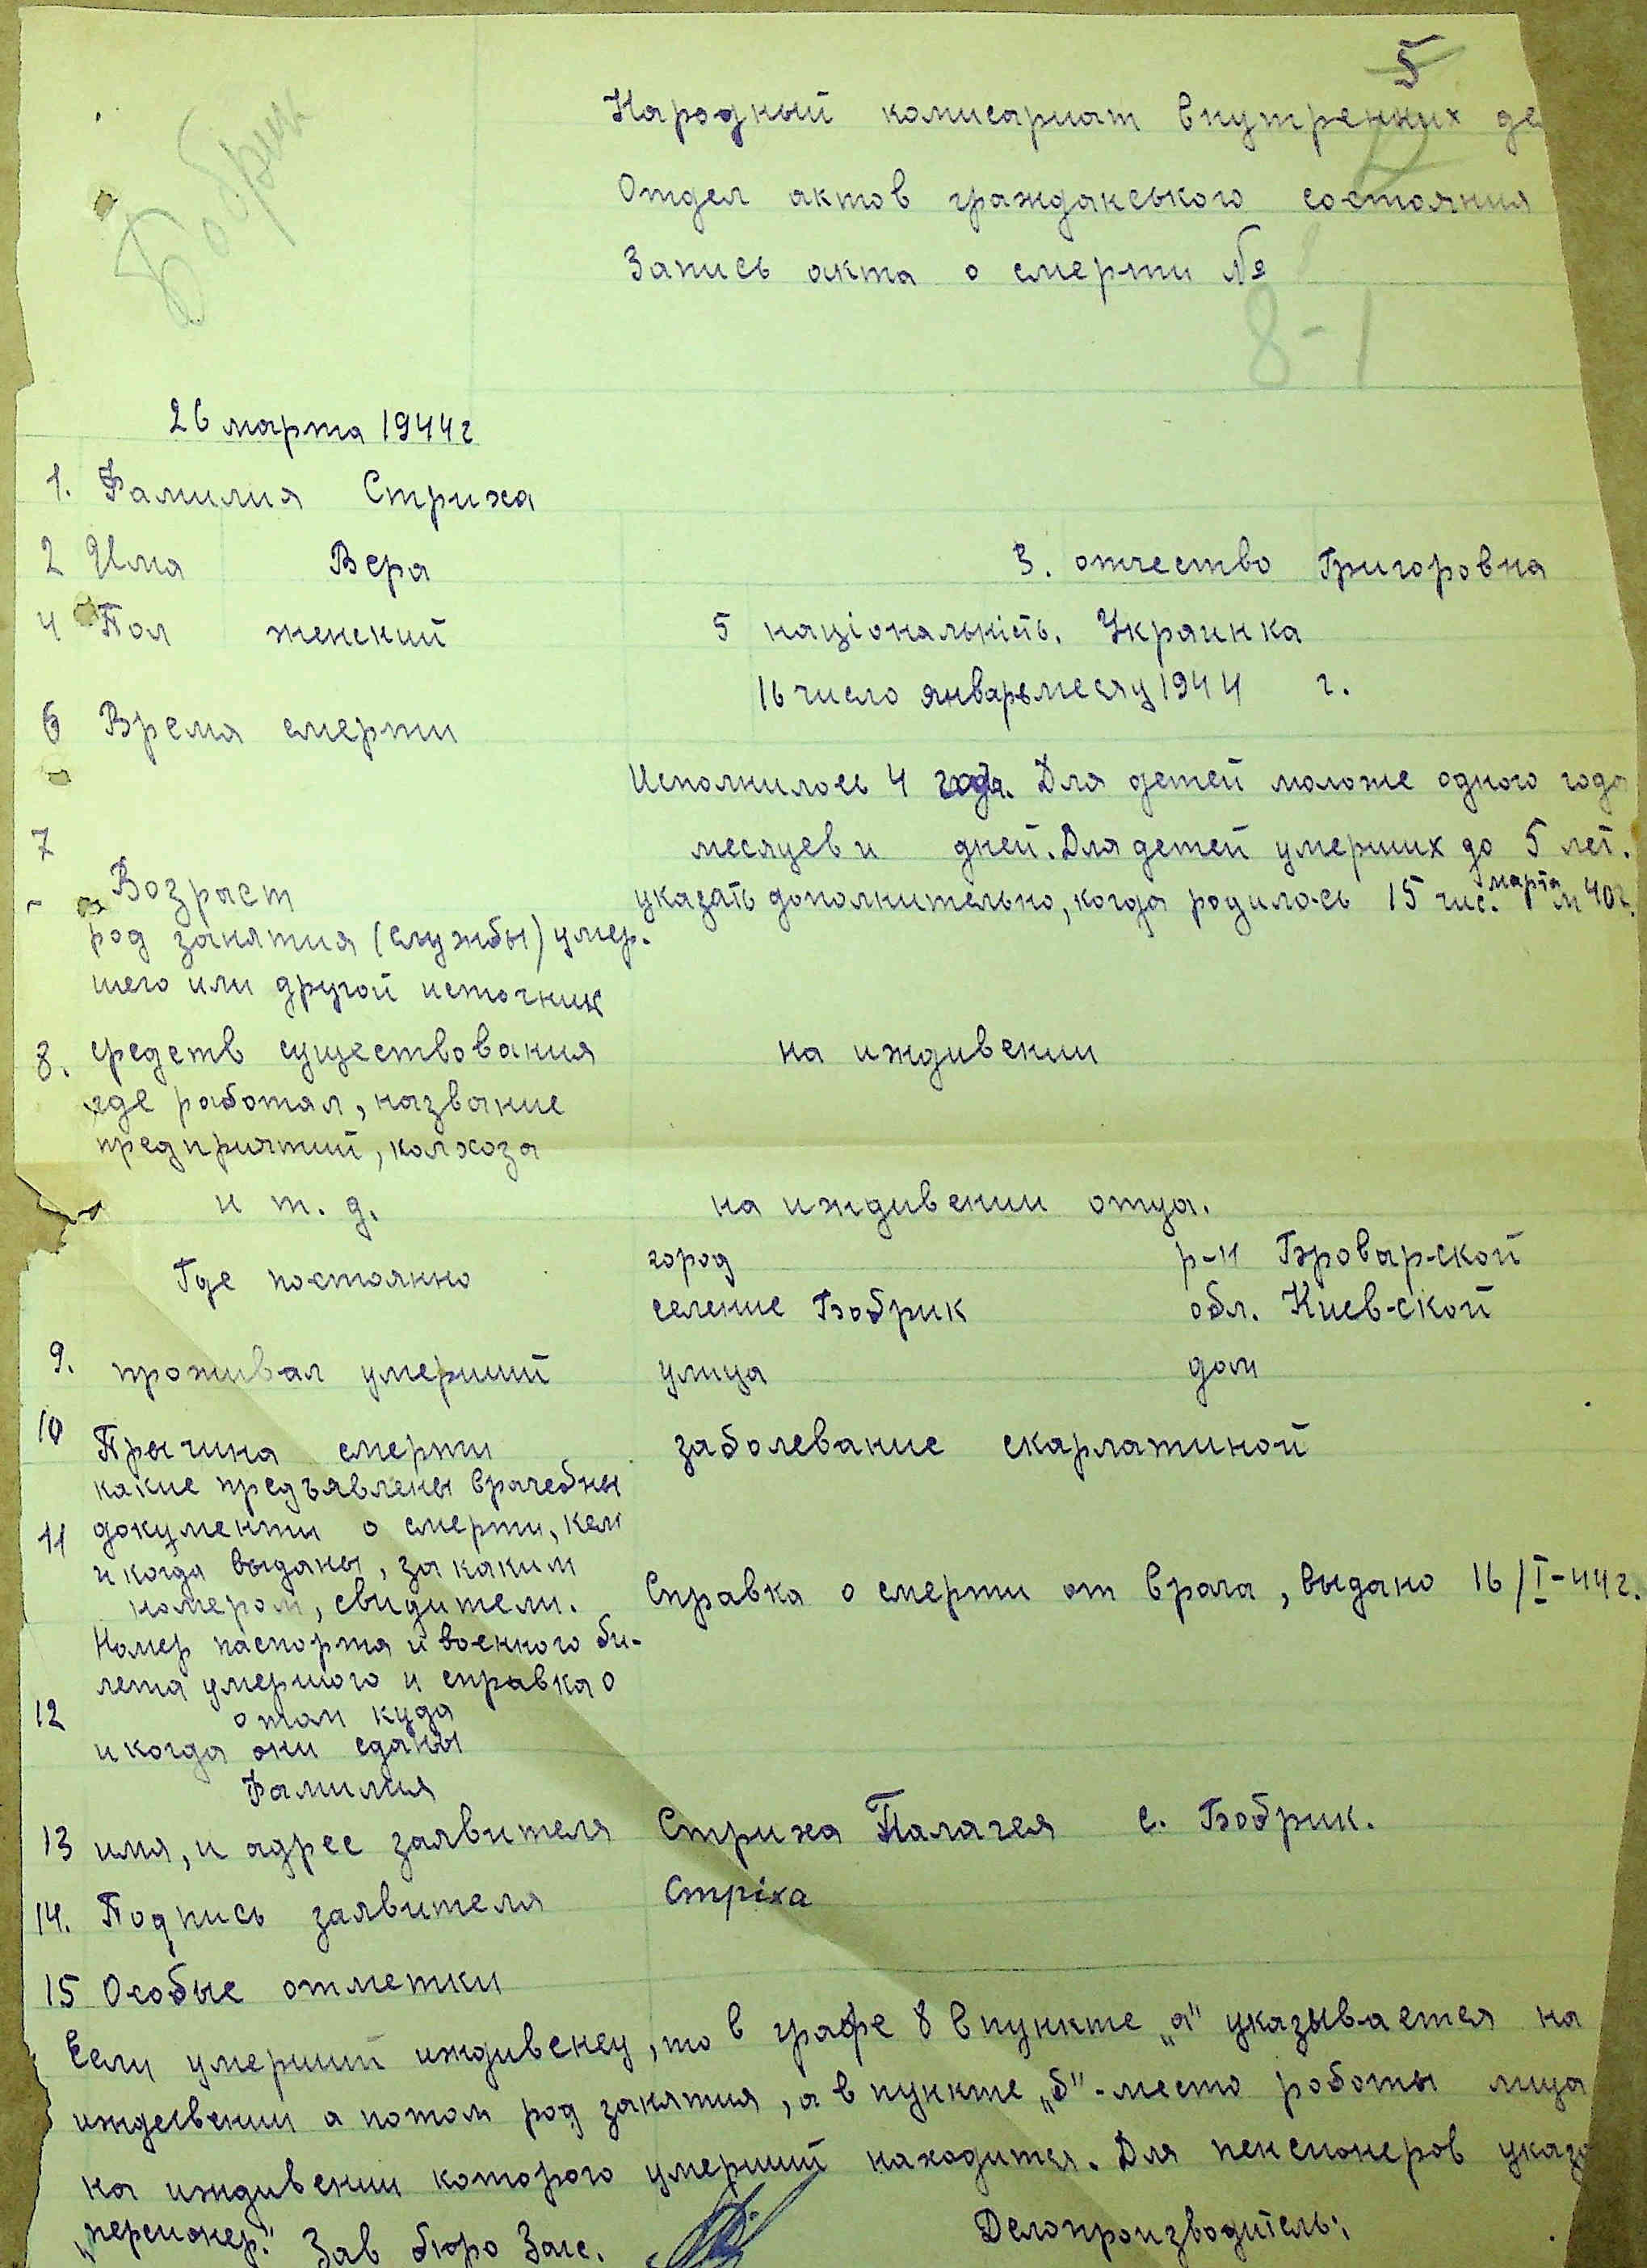 5
Бобрик
Народный комисариат внутренних де
Отдел актов гражданського состояния
Запись акта о смерти №
8-1
26 марта 1944 г
1. Фамилия Стриха
2 Имя Вера 3. отчество Григоровна
4 Пол женский 5 національність. Украинка
16 число январь месяц 1944 г.
6 Время смерти
Исполнилось 4 года. Для детей моложе одного года
7 месяцев и дней. Для детей умерших до 5 лет.
Возраст указать дополнительно, когда родилось 15 чис. марта м 40 г.
род занятия (службы) умер-
шего или другой источник
8. средств существования на иждивении
где работал, название
предприятий, колхоза
и т. д. на иждивении отца.
город р-н Броварской
Где постоянно
селение Бобрик обл. Киевской
9. проживал умерший улица дом
10 Прычина смерти заболевание скарлатиной
какие предъявлены врачебны
11 документи о смерти, кем
и когда выданы, за каким
номером, свидители. Справка о смерти от врача, выдано 16/I-44 г.
Номер паспорта и военного би-
лета умершого и справка о
12 отом куда
и когда они сданы
Фамилия
13 имя, и адрес заявителя Стриха Палагея с. Бобрик.
14. Подпись заявителя Стріха
15 Особые отметки
Если умерший иждивенец, то в графе 8 в пункте „а" указывается на
иждевении а потом род занятия, а в пункте „б"-место роботы лица
на иждивении которого умерший находится. Для пенсионеров указа
„персионер". Зав бюро Загс. Делопроизводитель: